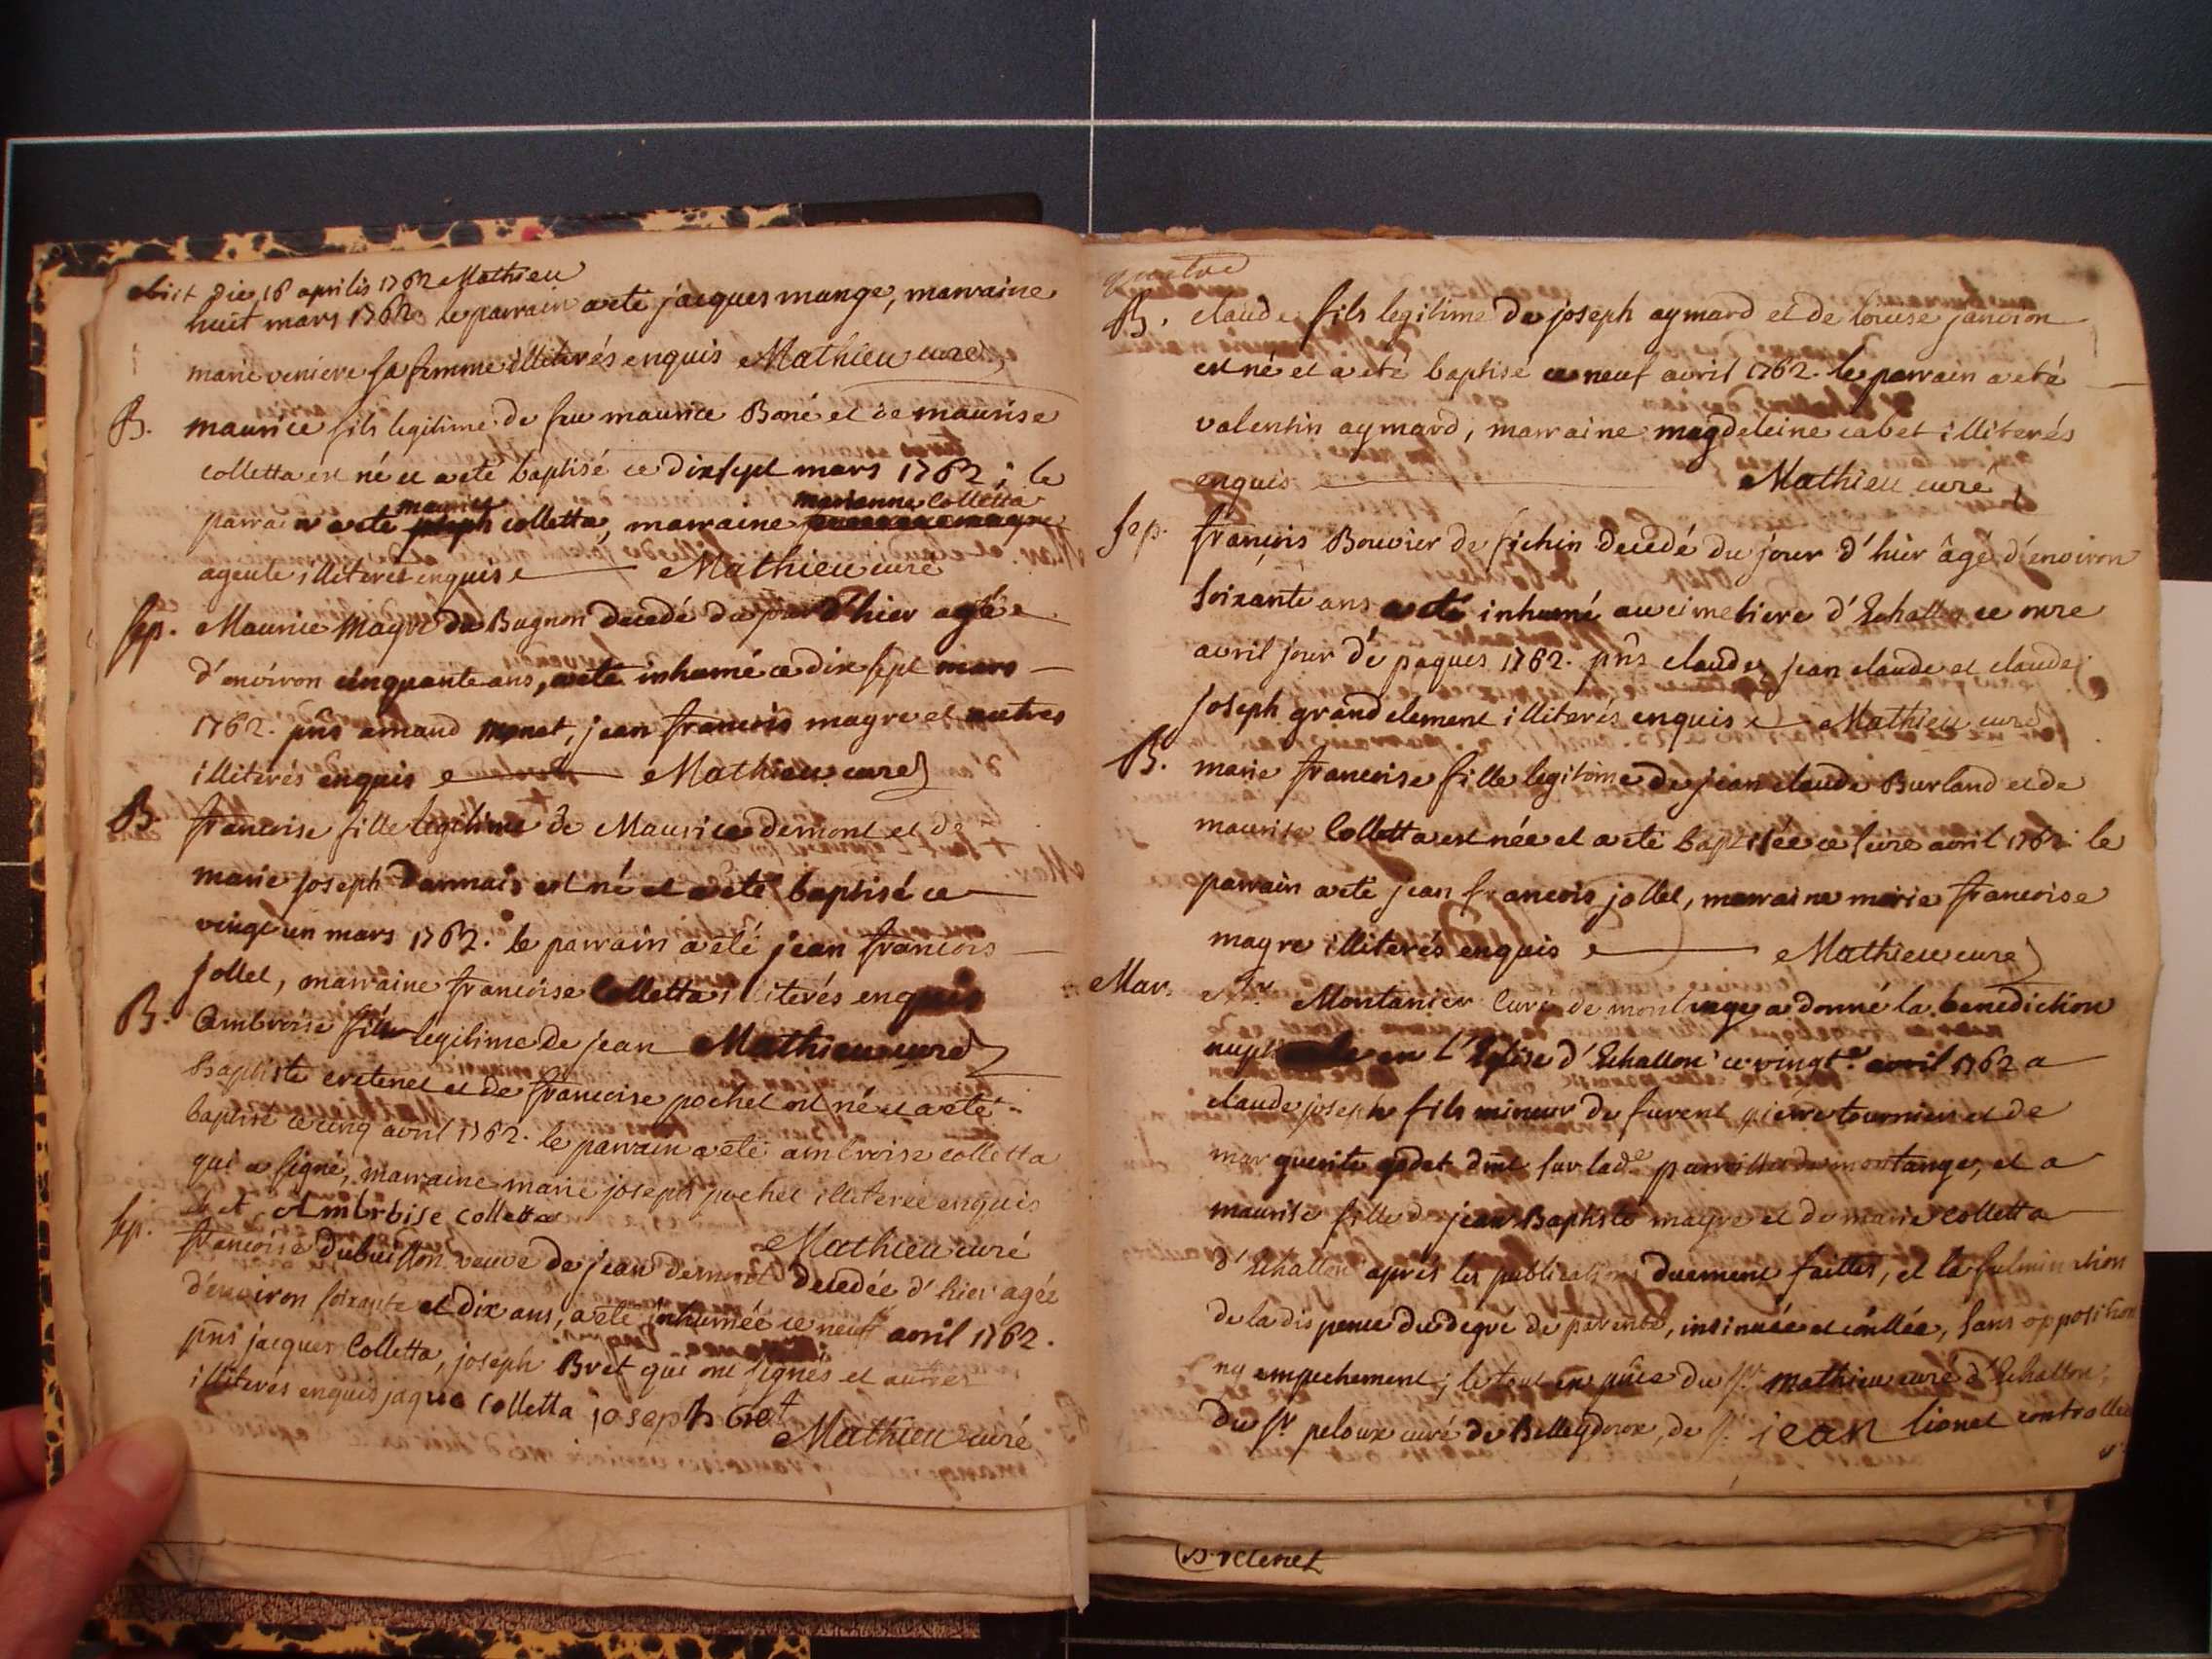 obiit die 16 aprilis 1762 Mathieu
huit mars 1762. le parrain a eté jacques mange, marraine
marie veniere sa femme illiterés enquis Mathieu curé
B. maurice fils legitime de feu maurice Boné et de maurise
colletta est né et a eté baptisé ce dix sept mars 1762; le
maurice marianne Colletta
parrain a eté joseph colletta, marraine
agente illiterés enquis Mathieu curé
sep. Maurice Mayre du Bugnon decedé du jour d'hier agé
d'environ cinquante ans, a eté inhumé ce dix sept mars
1762. pñs amand monet, jean francois magre et autres
illiterés enquis Mathieu curé
B. francoise fille legitime de Maurice demont et de
marie joseph Darmais est né et a eté baptisé ce
vingt un mars 1762. le parrain a eté jean francois
jollet, marraine francoise Colletta illiterés enquis
B. Ambroise fils legitime de jean Mathieu curé
baptiste cretenet et de francoise pochet est né et a eté
baptisé ce cinq avril 1762. le parrain a eté ambroise colletta
qui a signé, marraine marie joseph pochet illiterée enquis
et Ambroise colletta
Mathieu curé
sep. francoise dubuisson veuve de jean demont decedée d'hier agée
d'environ soixante et dix ans, a eté inhumée ce neuf avril 1762.
pñs jacques Colletta, joseph Bret qui ont signés et autres
illiterés enquis jaque colletta joseph bret
Mathieu curé
B. claude fils legitime de joseph aymard et de louise janvion
est né et a eté baptisé ce neuf avril 1762. le parrain a eté
valentin aymard, marraine magdeleine cabet illiterés
enquis Mathieu curé
sep. francois Bouvier de sichin decedé du jour d'hier âgé d'environ
soixante ans a eté inhumé au cimetiere d'Echallon ce onze
avril jour de paques 1762. pñs claude, jean claude et claude
joseph grandclement illiterés enquis Mathieu curé
B. marie francoise fille legitime de jean claude Burland et de
maurise Colletta est née et a eté baptisée ce seize avril 1762. le
parrain a eté jean francois jollet, marraine marie francoise
magre illiterés enquis Mathieu curé
Mar. Sr Montanier Curé de montange a donné la benediction
nuptiale en l'Eglise d'Echallon ce vingt avril 1762 a
claude joseph fils mineur de furent pierre tournier et de
marguerite godet dmt sur lade parroisse de montange, et a
maurise fille de jean Baptiste mayre et de marie colletta
d'Echallon après les publications duement faittes, et la fulmination
de la dispence du degré de parenté, insinuée et côntlée, sans opposition
ny empechement; le tout en pñce du sr mathieu curé d'Echallon,
du sr peloux curé de Belleydoux, de sr jean lionet controlleur
Bretenet